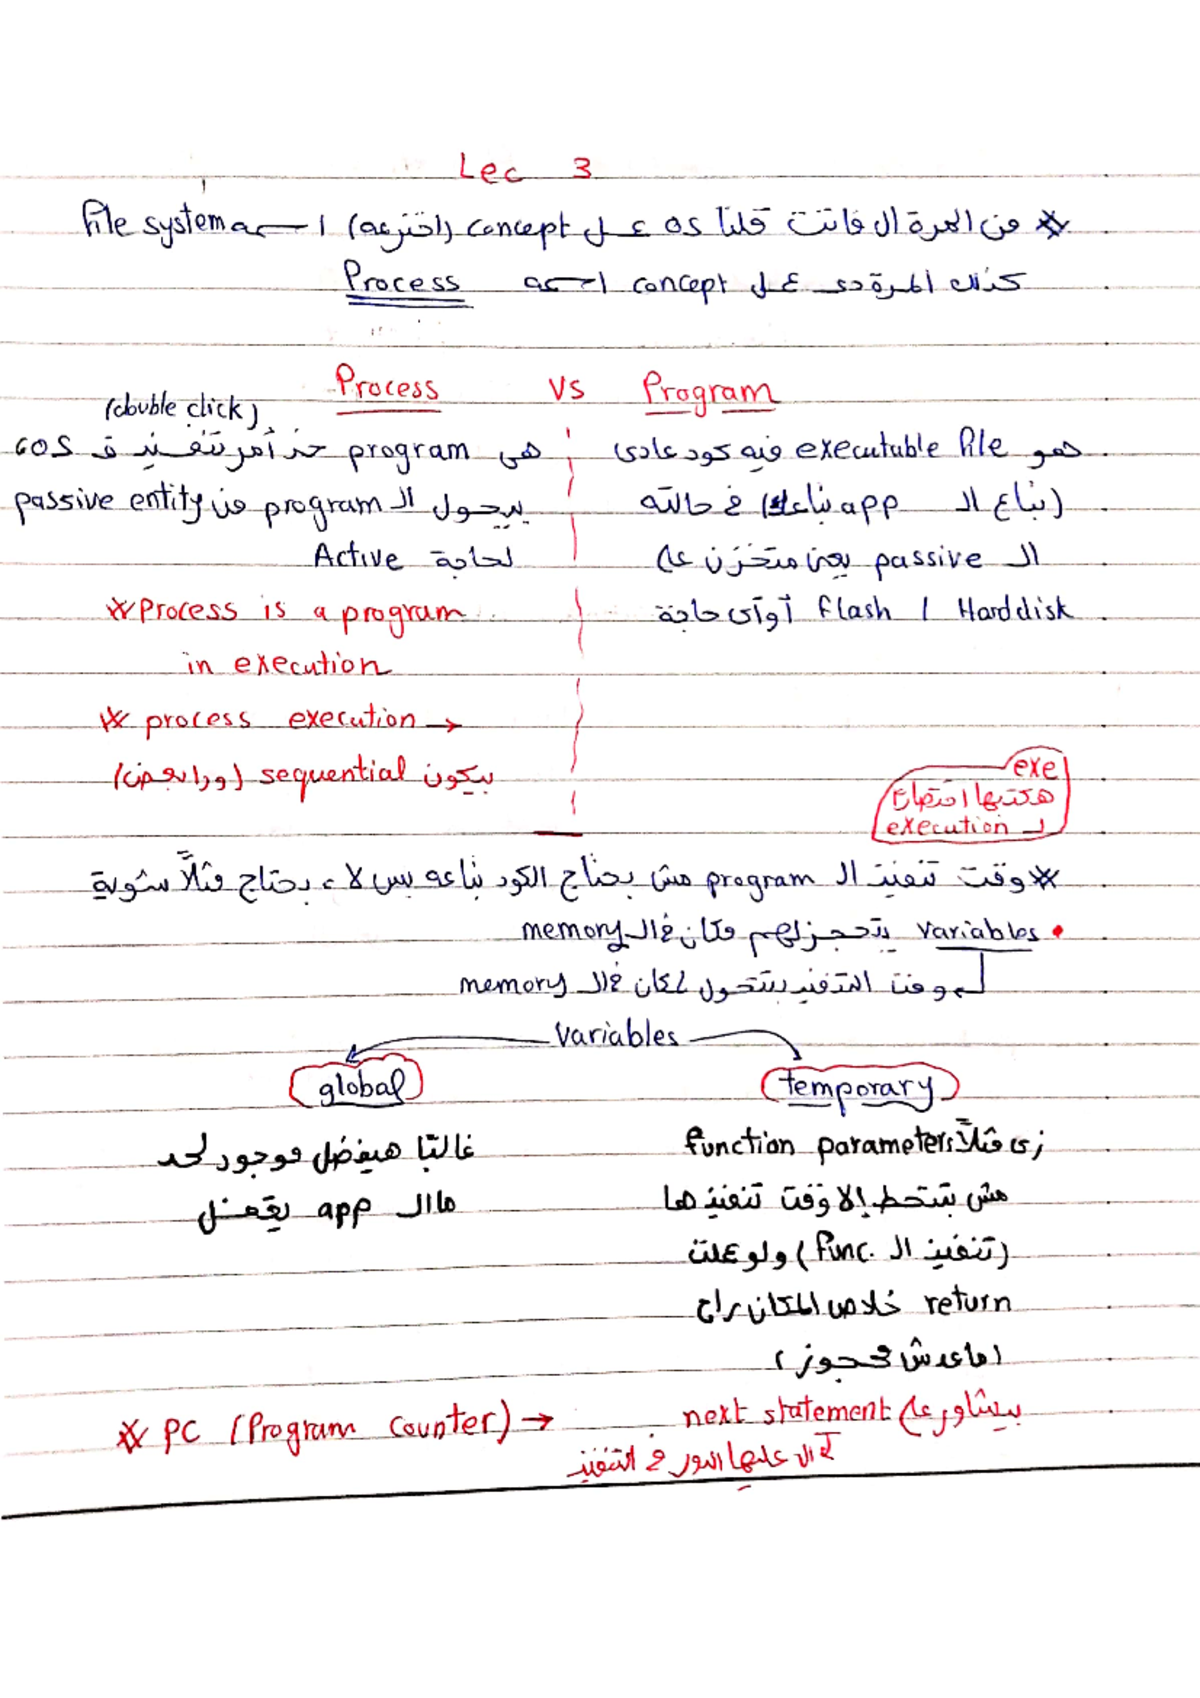 Lec 3
* من المرة ال فاتت قلنا OS عمل concept (اخترعه) اسمه file system
كذلك المرة دى عمل concept اسمه Process
Process VS Program
(double click)
هو executable file فيه كود عادى
(بتاع الـ app بتاعك) فى حالته
الـ passive يعنى متخزن على
Flash / Harddisk أو أى حاجة
هى program خد أمر تنفيذ ف OS
بيحول الـ program من passive entity
لحاجة Active
* Process is a program
in execution
* process execution →
بيكون sequential (ورا بعض)
exe
هكتبها اختصار
لـ execution
* وقت تنفيذ الـ program مش بحتاج الكود بتاعه بس لاء بحتاج مثلاً شوية
• variables يتحجز لهم مكان فى الـ memory
وقت التنفيذ بتتحول لمكان فى الـ memory
Variables
temporary
زى مثلاً function parameters
مش بتتحط إلا وقت تنفيذها
(تنفيذ الـ func.) ولو عملت
return خلاص المكان راح
(ماعدش محجوز)
global
غالبًا هيفضل موجود لحد
ما الـ app يقفل
* PC (Program Counter) → بيشاور على next statement
الـ عليها الدور فى التنفيذ